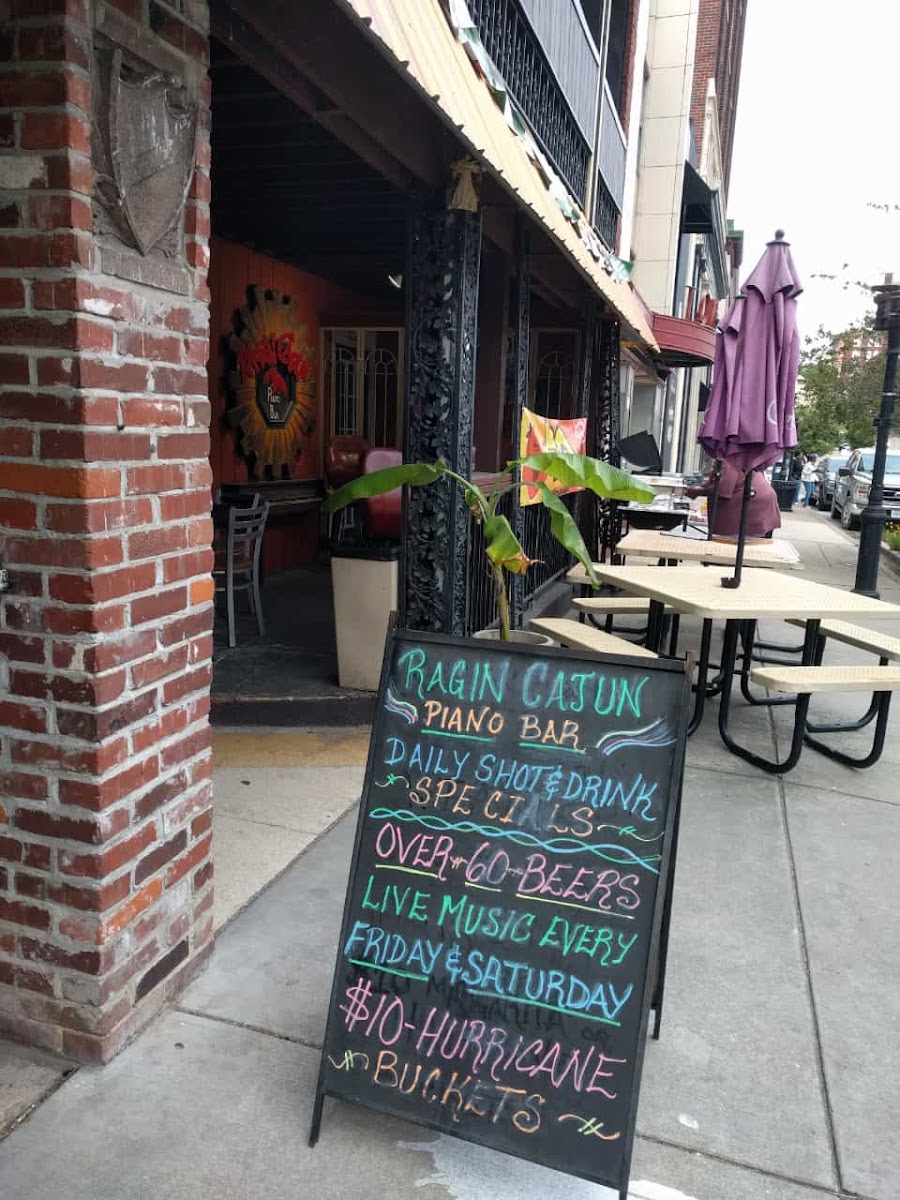 RAGIN CAJUN
PIANO BAR
DAILY SHOT & DRINK
SPECIALS
OVER 60 BEERS
LIVE MUSIC EVERY
FRIDAY & SATURDAY
$10-HURRICANE
BUCKETS
Piano
Bar